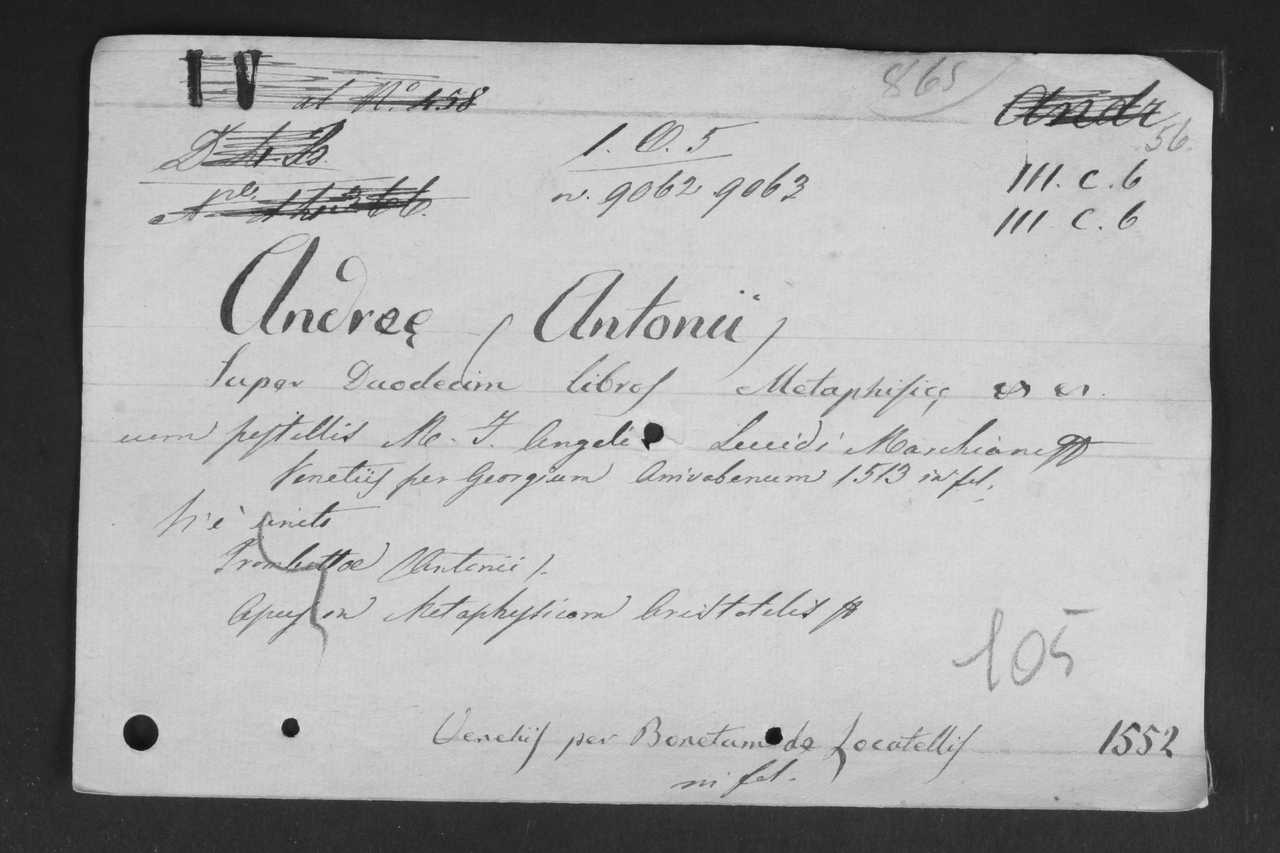 IV al N.º 458
865
Andr
56.
1. O. 5
n. 9062 9063
III. C. 6
III C. 6
Andreę (Antonii)
Super Duodecim libros Metaphisicę
Angeli Lucidi
Venetiis per Georgium Arrivabenum 1513 in fol.
V'è unito
Trombettae (Antonii).
Opus in Metaphysicam Aristotelis
105
Venetiis per Bonetum de Locatellis
1552
in fol.